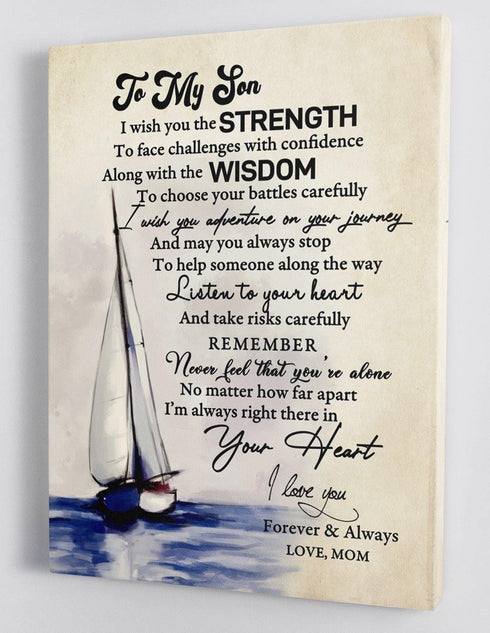 To My Son
I wish you the STRENGTH
To face challenges with confidence
Along with the WISDOM
To choose your battles carefully
I wish you adventure on your journey
And may you always stop
To help someone along the way
Listen to your heart
And take risks carefully
REMEMBER
Never feel that you're alone
No matter how far apart
I'm always right there in
Your Heart
I love you
Forever & Always
LOVE, MOM